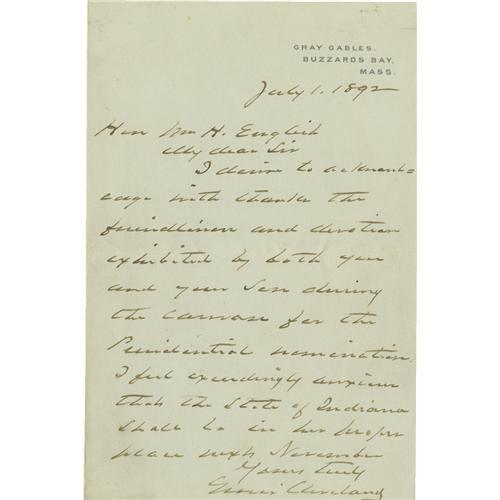 GRAY GABLES.
BUZZARDS BAY,
MASS.
July 1. 1892
Hon Wm H. English
My dear Sir
I desire to acknowl=
edge with thanks the
friendliness and devotion
exhibited by both you
and your Son during
the canvass for the
Presidential nomination.
I feel exceedingly anxious
that the State of Indiana
shall be in her proper
place next November
Yours truly
Grover Cleveland